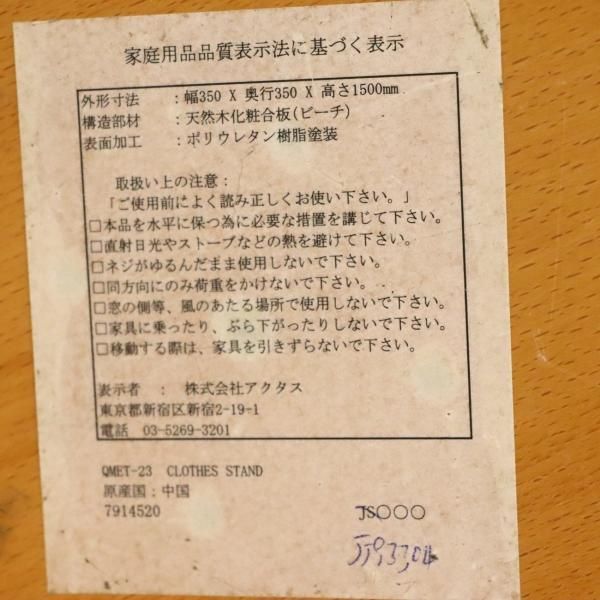 家庭用品品質表示法に基づく表示
外形寸法　：幅350 X 奥行350 X 高さ1500mm
構造部材　：天然木化粧合板(ビーチ)
表面加工　：ポリウレタン樹脂塗装
取扱い上の注意：
「ご使用前によく読み正しくお使い下さい。」
□本品を水平に保つ為に必要な措置を講じて下さい。
□直射日光やストーブなどの熱を避けて下さい。
□ネジがゆるんだまま使用しないで下さい。
□同方向にのみ荷重をかけないで下さい。
□窓の側等、風のあたる場所で使用しないで下さい。
□家具に乗ったり、ぶら下がったりしないで下さい。
□移動する際は、家具を引きずらないで下さい。
表示者　：　株式会社アクタス
東京都新宿区新宿2-19-1
電話　03-5269-3201
QMET-23　CLOTHES STAND
原産国：中国
7914520
JS○○○